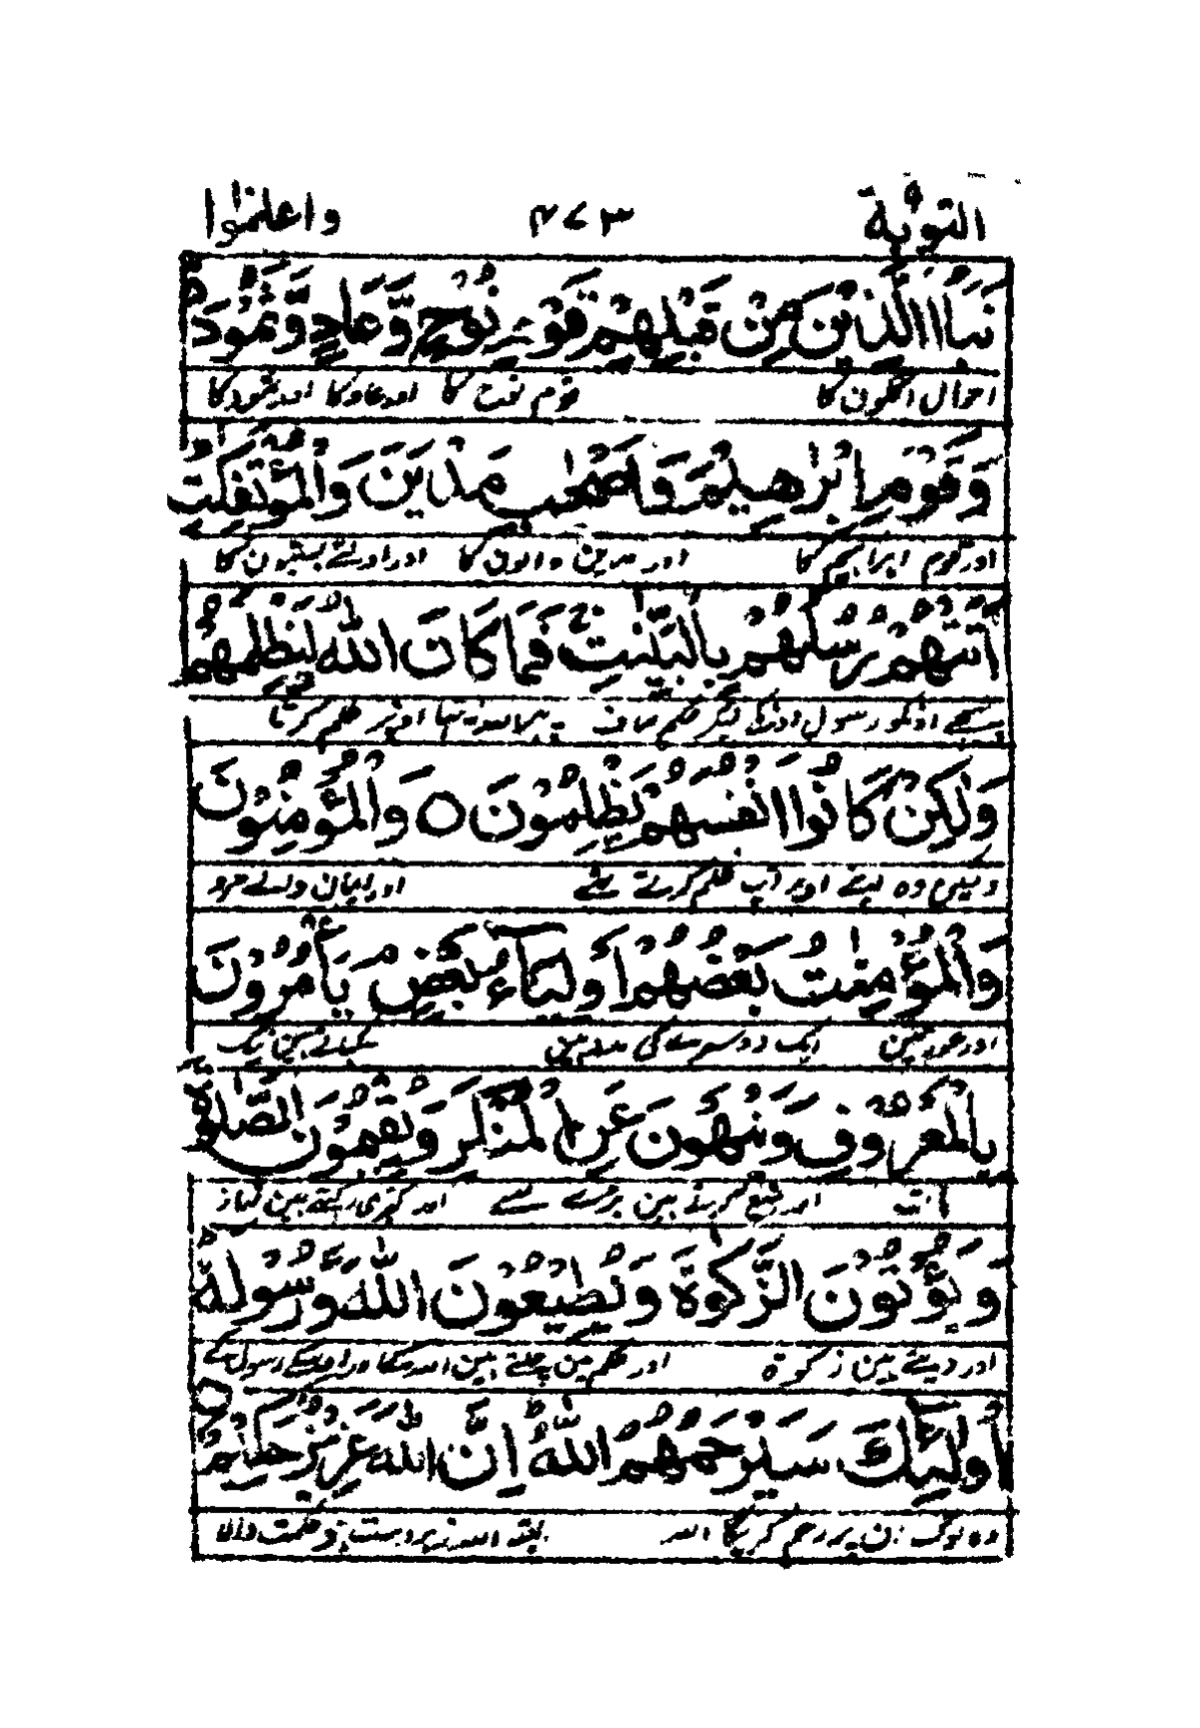 التوبة ٤٧٣ واعلموا
نَبَاُ الَّذِیْنَ مِنْ قَبْلِهِمْ قَوْمِ نُوْحٍ وَّعَادٍ وَّثَمُوْدَ
احوال اگلون کا قوم نوح کا اور عاد کا اور ثمود کا
وَقَوْمِ اِبْرٰهِیْمَ وَاَصْحٰبِ مَدْیَنَ وَالْمُؤْتَفِکٰتِ
اور قوم ابراہیم کا اور مدین والون کا اور اولٹی بستیون کا
اَتَتْهُمْ رُسُلُهُمْ بِالْبَیِّنٰتِ فَمَا کَانَ اللّٰهُ لِیَظْلِمَهُمْ
اونکو رسول اونکے لیکر حکم صاف اللہ نہ تھا اونپر ظلم کرتا
وَلٰکِنْ کَانُوْا اَنْفُسَهُمْ یَظْلِمُوْنَ ۝ وَالْمُؤْمِنُوْنَ
وہ اپنے اوپر آپ ظلم کرتے تھے اور ایمان والے مرد
وَالْمُؤْمِنٰتُ بَعْضُهُمْ اَوْلِیَآءُ بَعْضٍ یَاْمُرُوْنَ
اور عورتین ایک دوسرے کی مددہین سکھاتے ہین نیک
بِالْمَعْرُوْفِ وَیَنْهَوْنَ عَنِ الْمُنْکَرِ وَیُقِیْمُوْنَ الصَّلٰوةَ
بات اور منع کرتے ہین برے سے اور کھڑی رکھتے ہین نماز
وَیُؤْتُوْنَ الزَّکٰوةَ وَیُطِیْعُوْنَ اللّٰهَ وَرَسُوْلَهٗ
اور دیتے ہین زکوة اور حکم مین چلتے ہین اللہ کے اور اوسکے رسول کے
اُولٰٓئِکَ سَیَرْحَمُهُمُ اللّٰهُ اِنَّ اللّٰهَ عَزِیْزٌ حَکِیْمٌ ۝
وہ لوگ ان پر رحم کریگا اللہ البتہ اللہ زبردست ہے حکمت والا